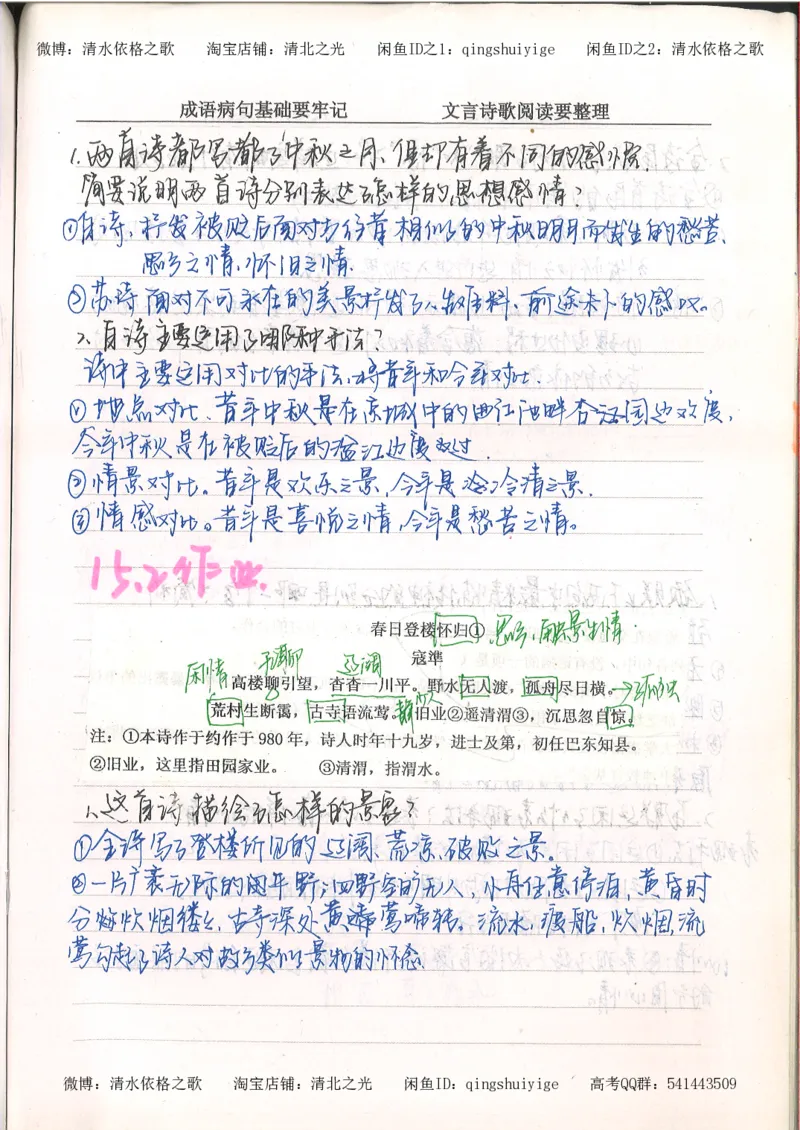 微博：清水依格之歌 淘宝店铺：清北之光 闲鱼ID之1：qingshuiyige 闲鱼ID之2：清水依格之歌
成语病句基础要牢记 文言诗歌阅读要整理
1.两首诗都写都了中秋之月,但却有着不同的感悟.
简要说明两首诗分别表达了怎样的思想感情?
①白诗,抒发被贬后面对与往昔相似的中秋明月而生的愁苦、
思乡之情,怀旧之情.
②苏诗面对不可永在的美景抒发了人生难料、前途未卜的感叹。
2.白诗主要运用了哪种手法?
诗中主要运用对比的手法,将昔年和今年对比.
① 地点对比、昔年中秋是在京城中的曲江池畔杏园边欢度,
今年中秋是在被贬后的湓江边度过.
②情景对比。昔年是欢乐之景,今年是冷清之景.
③情感对比。昔年是喜悦之情,今年是愁苦之情。
15.2作业.
春日登楼怀归① 思乡,触景生情
寇準
闲情 无聊 辽阔
高楼聊引望，杳杳一川平。野水无人渡，孤舟尽日横。→孤独
荒村生断霭，古寺语流莺。静 旧业②遥清渭③，沉思忽自惊。
注：①本诗作于约作于 980 年，诗人时年十九岁，进士及第，初任巴东知县。
②旧业，这里指田园家业。 ③清渭，指渭水。
1.这首诗描绘了怎样的景象?
①全诗写了登楼所见的辽阔、荒凉、破败之景。
②一片广袤无际的困年野,四野空旷无人,小舟任意停泊,黄昏时
分炊烟缕缕,古寺深处黄莺啼转。流水,废船,炊烟,流
莺勾起了诗人对故乡类似景物的怀念.
微博：清水依格之歌 淘宝店铺：清北之光 闲鱼ID：qingshuiyige 高考QQ群：541443509